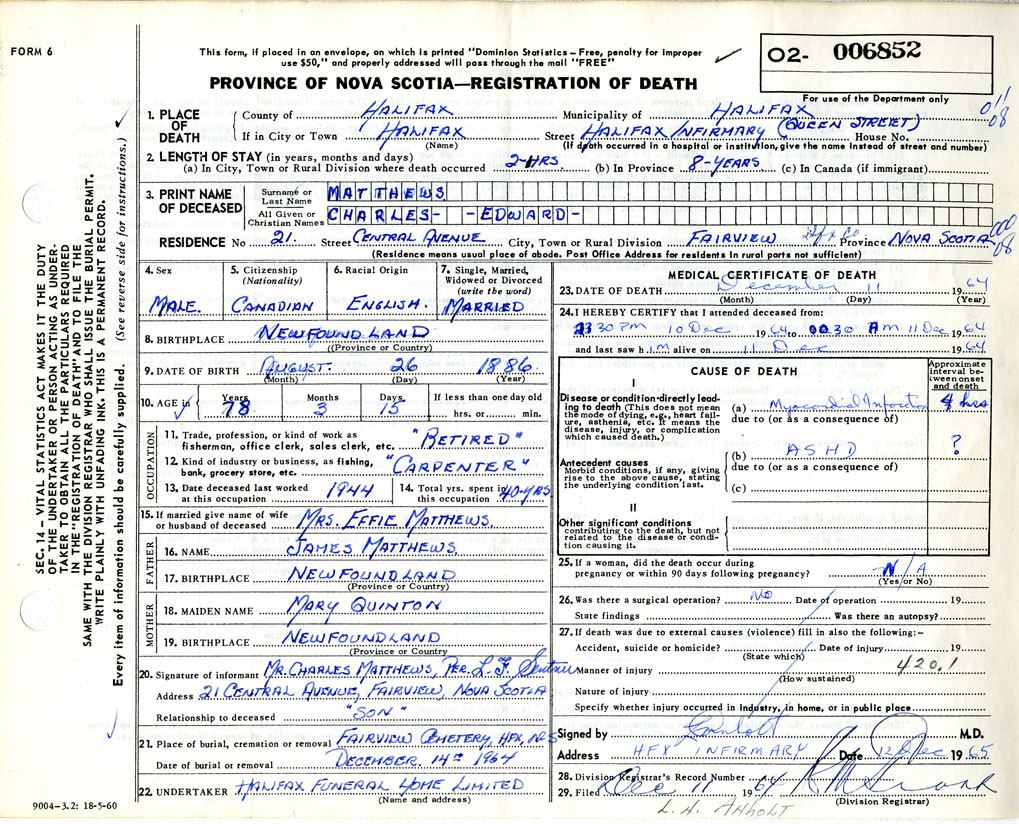 FORM 6
This form, if placed in an envelope, on which is printed "Dominion Statistics – Free, penalty for improper
use $50," and properly addressed will pass through the mail "FREE"
O2- 006852
PROVINCE OF NOVA SCOTIA—REGISTRATION OF DEATH
For use of the Department only
011
08
1. PLACE OF DEATH
County of HALIFAX Municipality of HALIFAX
If in City or Town HALIFAX Street HALIFAX INFIRMARY (QUEEN STREET) House No.
(Name) (If death occurred in a hospital or institution, give the name instead of street and number)
2. LENGTH OF STAY (in years, months and days)
(a) In City, Town or Rural Division where death occurred 2-HRS (b) In Province 8-YEARS (c) In Canada (if immigrant)
3. PRINT NAME OF DECEASED
Surname or Last Name MATTHEWS
All Given or Christian Names CHARLES- -EDWARD-
RESIDENCE No 21. Street CENTRAL AVENUE City, Town or Rural Division FAIRVIEW Hfx Co Province NOVA SCOTIA
000
08
(Residence means usual place of abode. Post Office Address for residents in rural parts not sufficient)
4. Sex
MALE.
5. Citizenship
(Nationality)
CANADIAN
6. Racial Origin
ENGLISH.
7. Single, Married,
Widowed or Divorced
(write the word)
MARRIED
8. BIRTHPLACE NEWFOUNDLAND
((Province or Country)
9. DATE OF BIRTH AUGUST. 26 1886.
(Month) (Day) (Year)
10. AGE in
Years Months Days If less than one day old
78 3 15 hrs. or min.
OCCUPATION
11. Trade, profession, or kind of work as
fisherman, office clerk, sales clerk, etc. "RETIRED"
12. Kind of industry or business, as fishing,
bank, grocery store, etc. "CARPENTER"
13. Date deceased last worked
at this occupation 1944
14. Total yrs. spent in
this occupation 40-YRS
15. If married give name of wife
or husband of deceased MRS. EFFIE MATTHEWS.
FATHER
16. NAME JAMES MATTHEWS.
17. BIRTHPLACE NEWFOUNDLAND
(Province or Country)
MOTHER
18. MAIDEN NAME MARY QUINTON
19. BIRTHPLACE NEWFOUNDLAND
(Province or Country)
20. Signature of informant MR. CHARLES MATTHEWS, PER. L. F.
Address 21 CENTRAL AVENUE, FAIRVIEW, NOVA SCOTIA
Relationship to deceased "SON"
21. Place of burial, cremation or removal FAIRVIEW CEMETERY, HFX, N.S
Date of burial or removal DECEMBER 14TH 1964
22. UNDERTAKER HALIFAX FUNERAL HOME LIMITED
(Name and address)
9004–3.2: 18-5-60
MEDICAL CERTIFICATE OF DEATH
23. DATE OF DEATH December 11 1964
(Month) (Day) (Year)
24. I HEREBY CERTIFY that I attended deceased from:
30 PM 10 Dec 1964 to 0030 AM 11 Dec 1964
and last saw him alive on 11 Dec 1964
CAUSE OF DEATH
Approximate
interval be-
tween onset
and death
I
Disease or condition directly lead-
ing to death (This does not mean
the mode of dying, e.g., heart fail-
ure, asthenia, etc. It means the
disease, injury, or complication
which caused death.)
(a) Myocardial Infarction 4 hrs
due to (or as a consequence of)
Antecedent causes
Morbid conditions, if any, giving
rise to the above cause, stating
the underlying condition last.
(b) ASHD ?
due to (or as a consequence of)
(c)
II
Other significant conditions
contributing to the death, but not
related to the disease or condi-
tion causing it.
25. If a woman, did the death occur during
pregnancy or within 90 days following pregnancy? N/A
(Yes or No)
26. Was there a surgical operation? NO Date of operation 19
State findings Was there an autopsy?
27. If death was due to external causes (violence) fill in also the following:–
Accident, suicide or homicide? Date of injury 19
(State which)
Manner of injury 420.1
(How sustained)
Nature of injury
Specify whether injury occurred in industry, in home, or in public place
Signed by M.D.
Address HFX INFIRMARY Date 12 Dec 1965
28. Division Registrar's Record Number
29. Filed Dec 11 1964
(Division Registrar)
L. H. Anholt
SEC. 14 – VITAL STATISTICS ACT MAKES IT THE DUTY
OF THE UNDERTAKER OR PERSON ACTING AS UNDER-
TAKER TO OBTAIN ALL THE PARTICULARS REQUIRED
IN THE "REGISTRATION OF DEATH" AND TO FILE THE
SAME WITH THE DIVISION REGISTRAR WHO SHALL ISSUE THE BURIAL PERMIT.
WRITE PLAINLY WITH UNFADING INK. THIS IS A PERMANENT RECORD.
Every item of information should be carefully supplied. (See reverse side for instructions.)